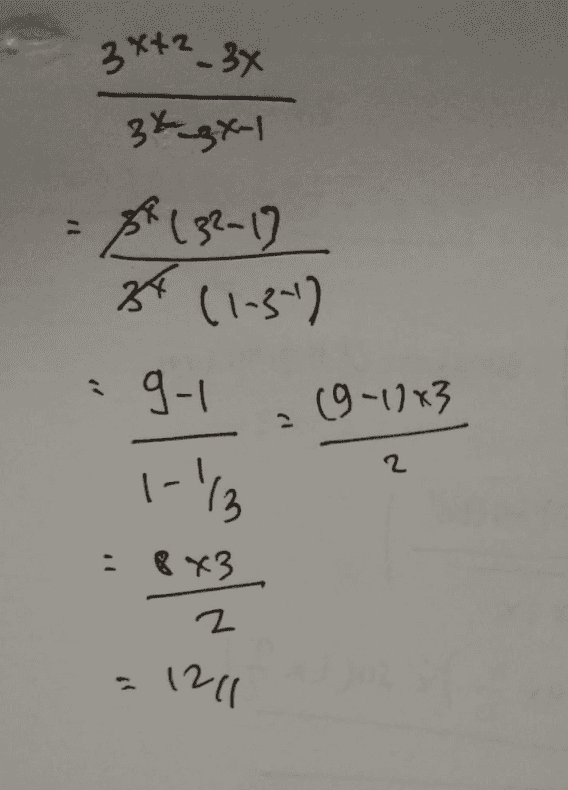 3^{x+2} - 3x
3^x - 3^{x-1}
= 3^x (3^2 - 1)
3^x (1 - 3^{-1})
= 9-1 = (9-1)×3
1 - 1/3 2
= 8×3
2
= 12//